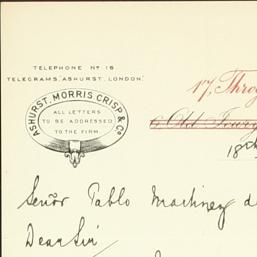 TELEPHONE Nº 16
TELEGRAMS, "ASHURST, LONDON."
ASHURST, MORRIS, CRISP & Cº
ALL LETTERS
TO BE ADDRESSED
TO THE FIRM
17, Throg
6 Old Jewry
18th
Señor Pablo Martinez d
Dear Sir